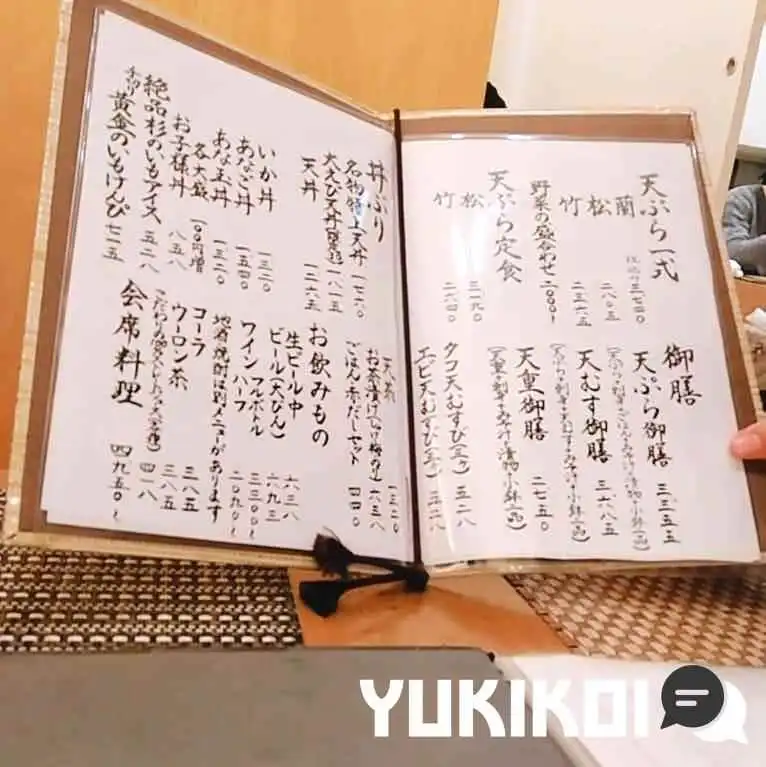 天ぷら一式
蘭 税込 三七四〇
松 二八〇五
竹 二三六五
野菜の盛合わせ 二〇〇〇〜
天ぷら定食
松 三一九〇
竹 二六四〇
御膳
天ぷら御膳 三三五五
天むす御膳 三六八五
天重御膳 二七五〇
(天重・刺身・みそ汁・漬物・小鉢一品)
タコ天むすび(三ヶ) 五二八
エビ天むすび(三ヶ) 五二八
丼ぶり
名物特上天丼 一七六〇
大えび天丼 一八一五
天丼 一二六五
いか丼 一三二〇
あなご丼 一五四〇
あな玉丼 一三二〇
各大盛 一〇〇円増
お子様丼 八五八
絶品杉のいもアイス 五二八
手切り黄金のいもけんぴ 七一五
天茶 一三二〇
お茶漬け 六三八
ごはん・赤だしセット 四四〇
お飲みもの
生ビール中 六三八
ビール(大びん) 六九三
ワイン フルボトル 三三〇〇〜
ハーフ 二〇九〇〜
地酒・焼酎は別メニューがあります
コーラ 三八五
ウーロン茶 三八五
四一八
会席料理 四九五〇〜
YUKIKOI